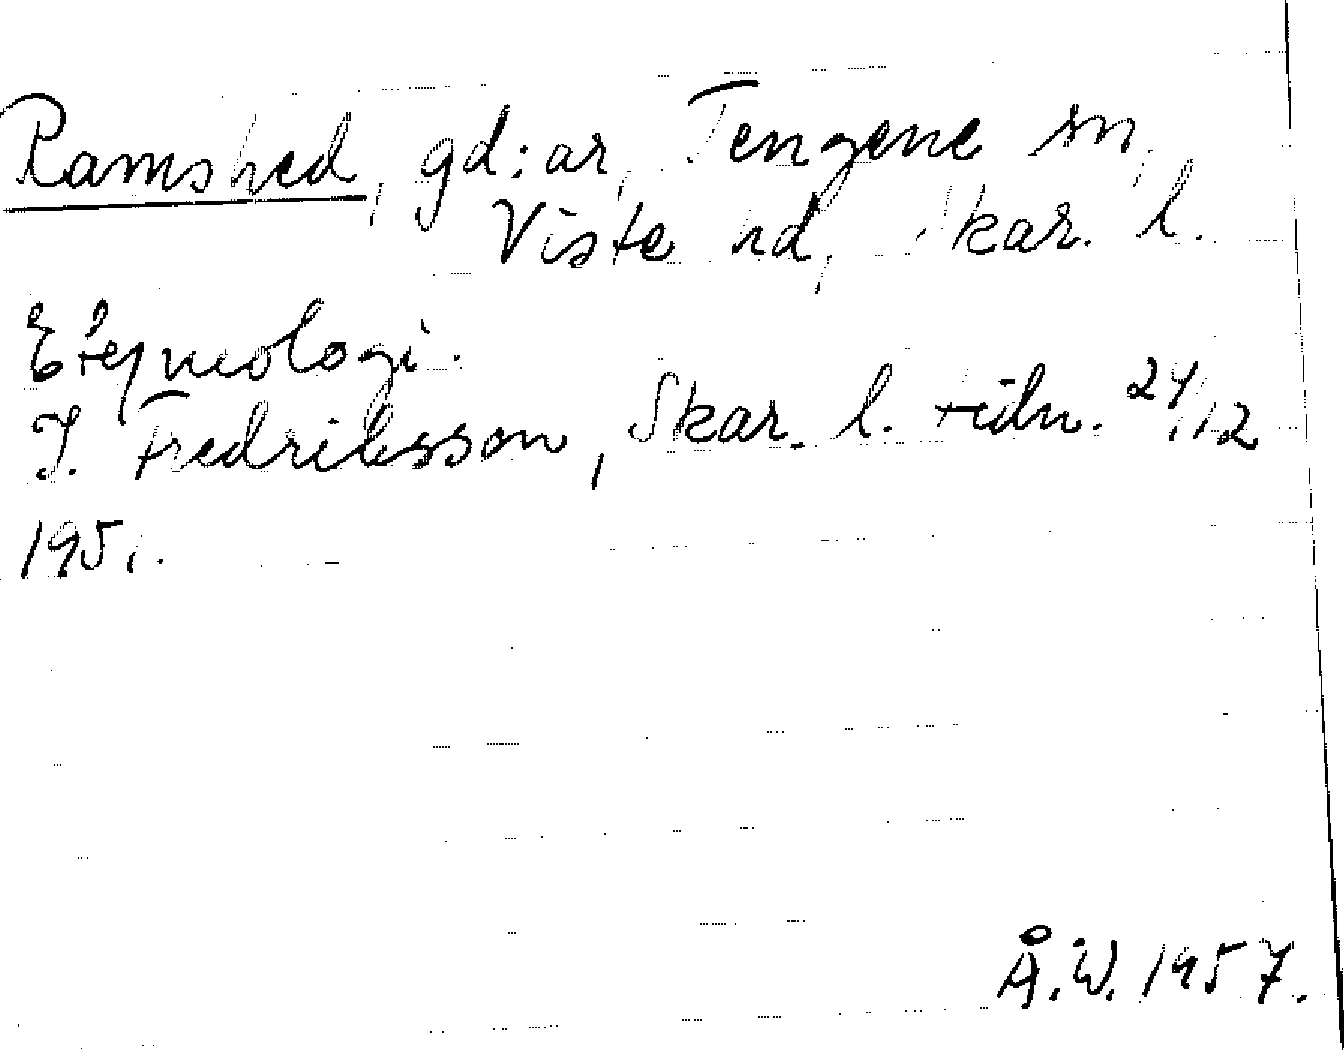 Ramshed, gd:ar, Tengene sn,
Viste hd, Skar. l.
Etymologi.
I. Fredriksson, Skar. l. tidn. 24/12
1951.
Å.W. 1957.